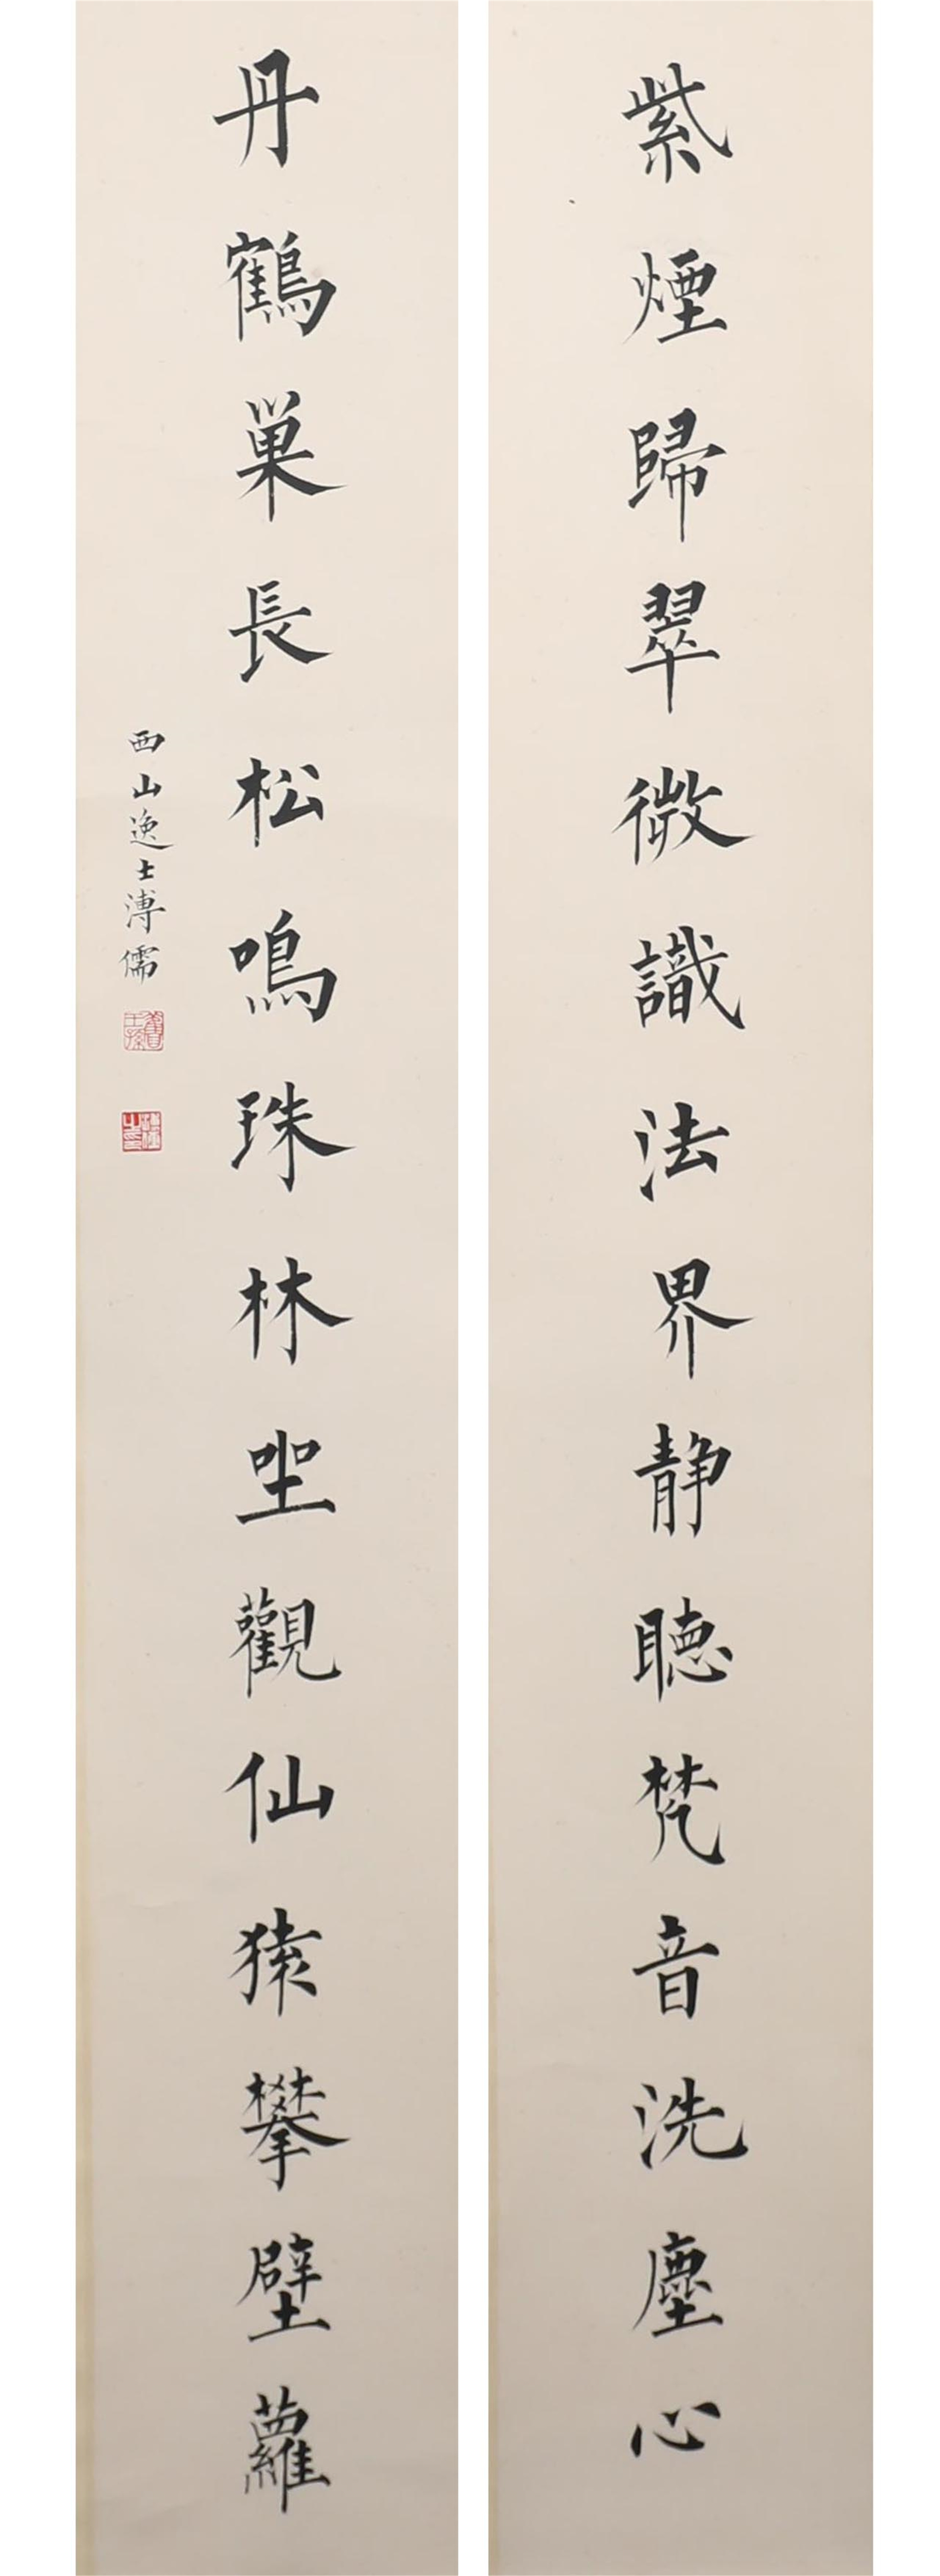 紫煙歸翠微識法界静聽梵音洗塵心
丹鶴巢長松鳴珠林坐觀仙猿攀壁蘿
西山逸士溥儒
舊王孫
溥儒之印